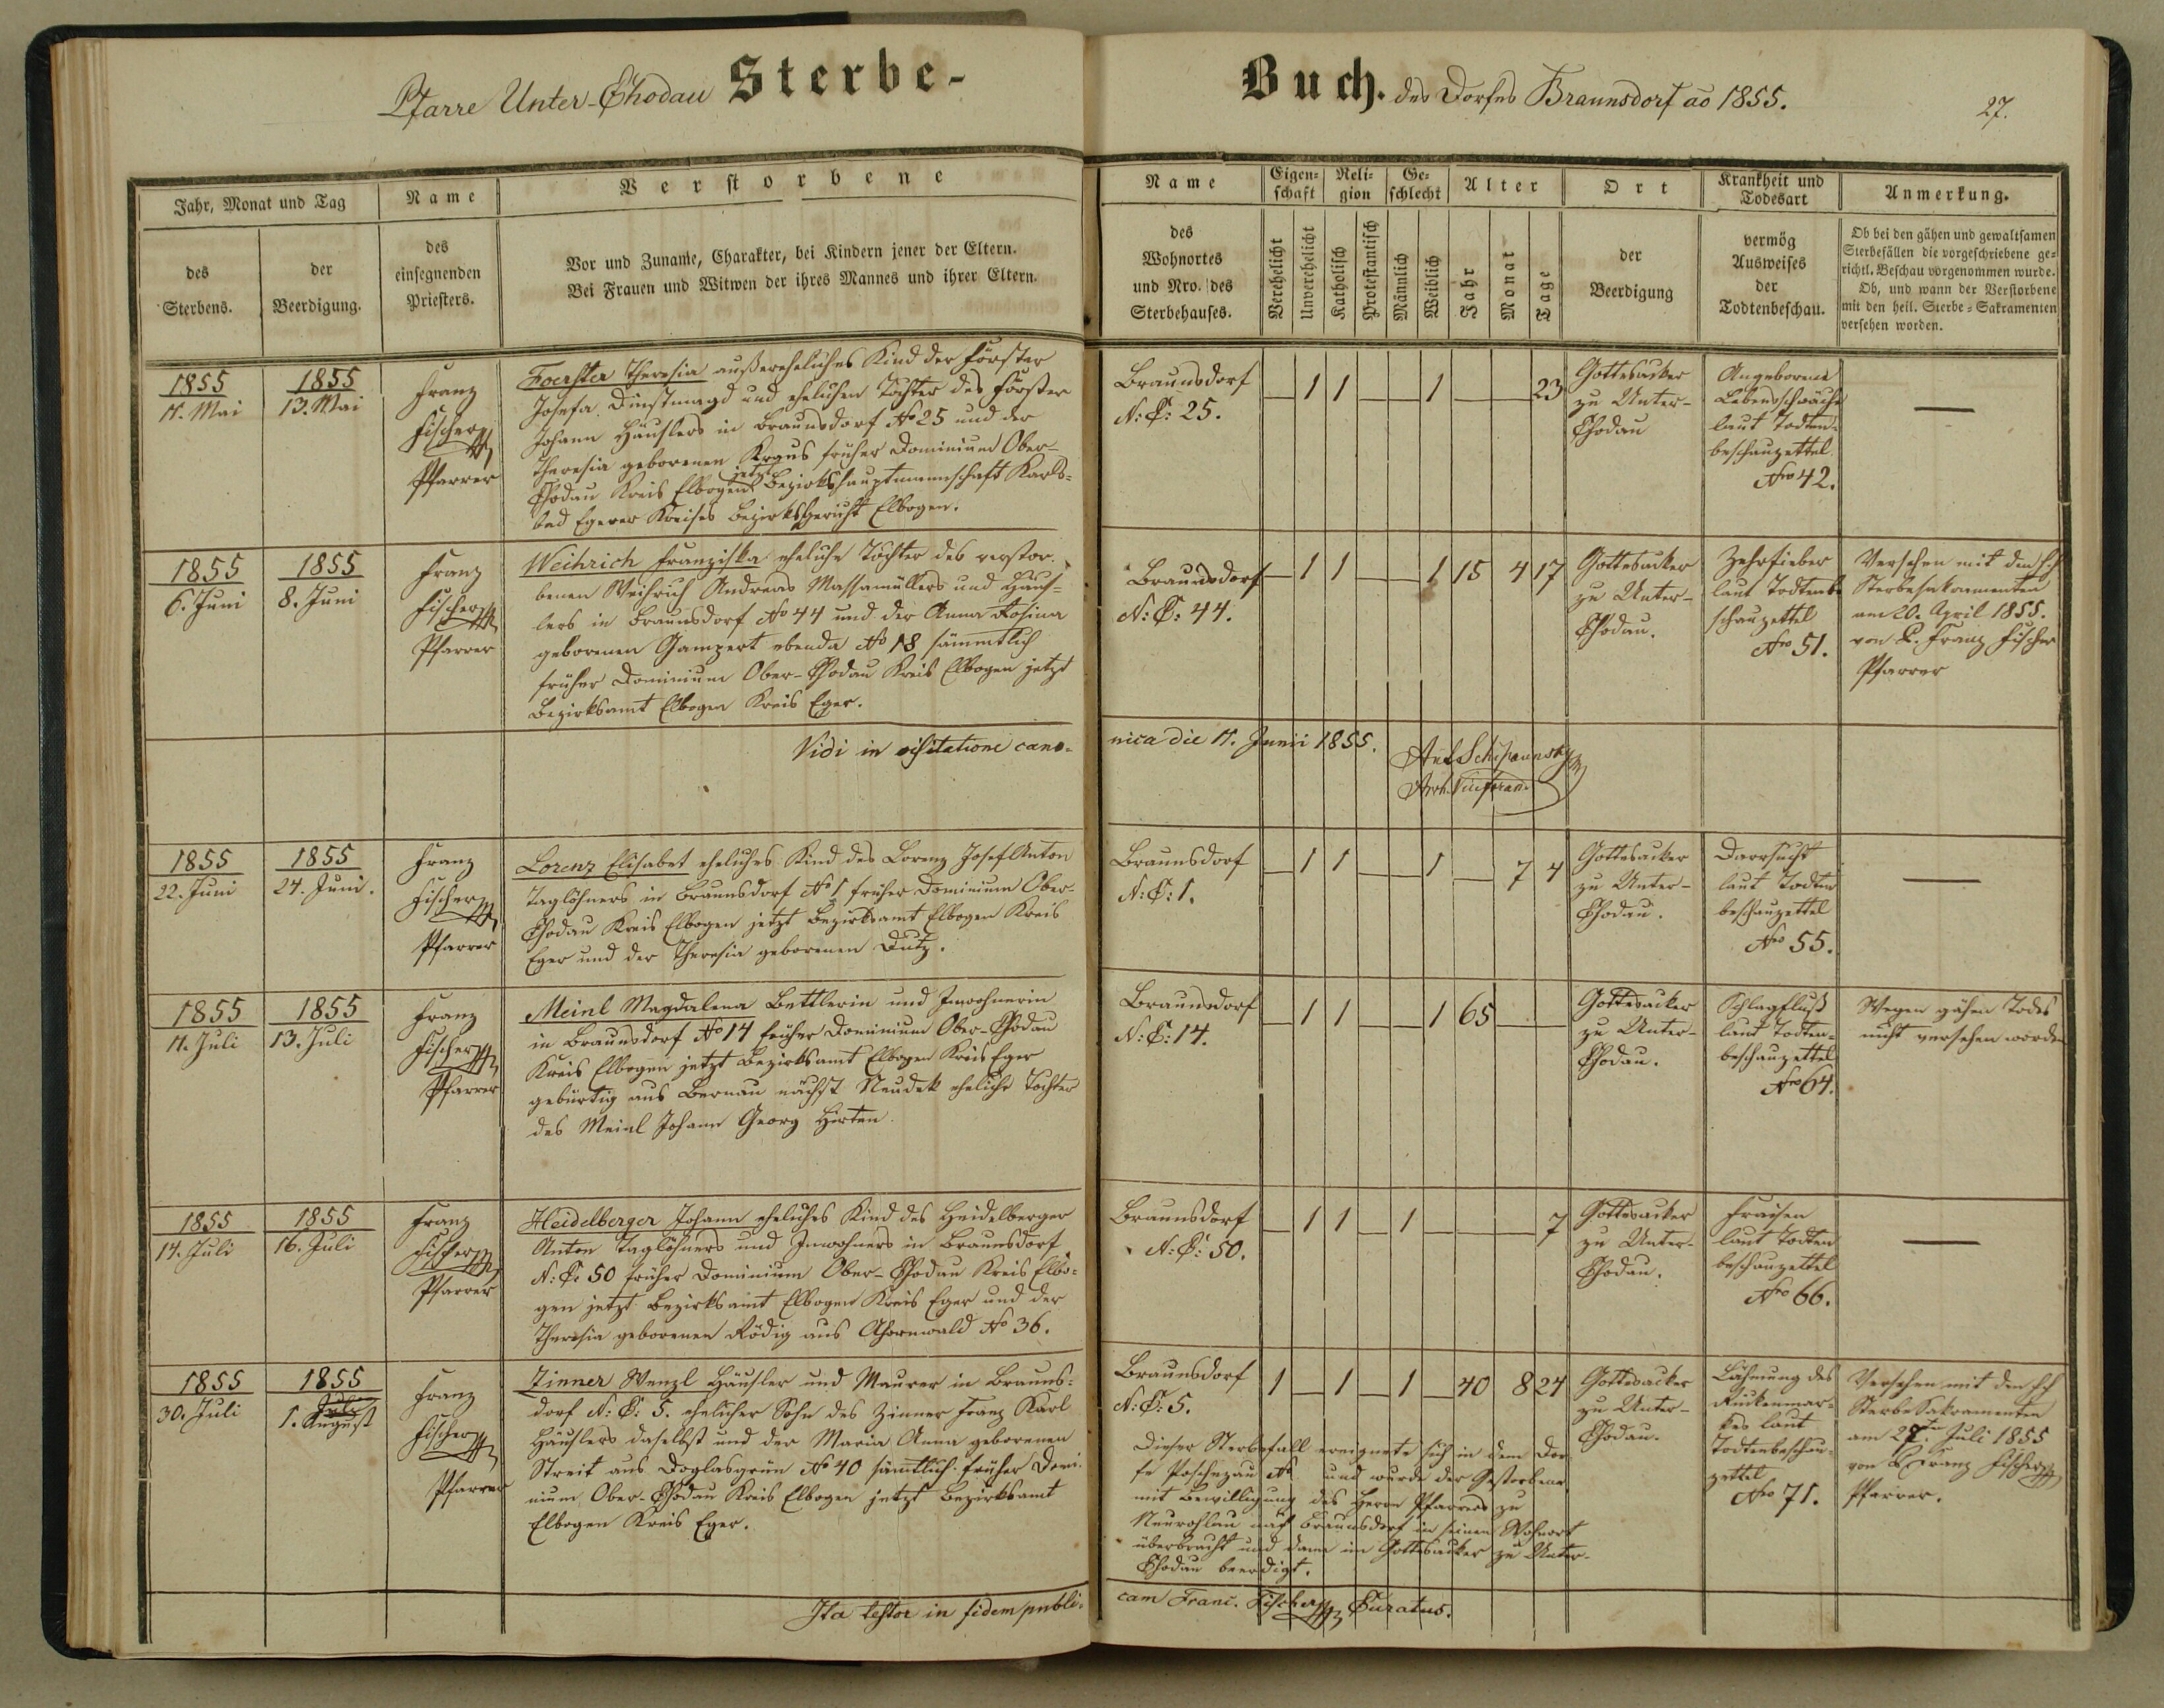 Pfarre Unter-Chodau Sterbe-
Buch. des Dorfes Braunsdorf ao 1855.
27.
Jahr, Monat und Tag
des
Sterbens.
der
Beerdigung.
Name
des
einsegnenden
Priesters.
Verstorbene
Vor und Zuname, Charakter, bei Kindern jener der Eltern.
Bei Frauen und Witwen der ihres Mannes und ihrer Eltern.
Name
des
Wohnortes
und Nro. des
Sterbehauses.
Eigen=
schaft
Verehelicht
Unverehelicht
Reli=
gion
Katholisch
Protestantisch
Ge=
schlecht
Männlich
Weiblich
Alter
Jahr
Monat
Tage
Ort
der
Beerdigung
Krankheit und
Todesart
vermög
Ausweises
der
Todtenbeschau.
Anmerkung.
Ob bei den gähen und gewaltsamen
Sterbefällen die vorgeschriebene ge=
richtl. Beschau vorgenommen wurde.
Ob, und wann der Verstorbene
mit den heil. Sterbe=Sakramenten
versehen worden.
1855
11. Mai
1855
13. Mai
Franz
Fischer
Pfarrer
Foerster Theresia außereheliches Kind der Förster
Josefa Dinstmagd und ehelichen Tochter des Förster
Johann Häuslers in Braunsdorf No 25 und der
Theresia geborenen Kraus früher Dominium Ober-
Chodau Kreis Elbogen jetzt Bezirkshauptmannschaft Karls=
bad Egerer Kreises Bezirksgericht Elbogen.
Braunsdorf
N: C: 25.
— 1 1 — — 1 — — 23
Gottesacker
zu Unter-
Chodau
Angeborene
Lebensschwäche
laut Todten=
beschauzettel
Nro 42.
—
1855
6. Juni
1855
8. Juni
Franz
Fischer
Pfarrer
Weihrich Franziska eheliche Tochter des verstor.
benen Weihrich Andreas Massamüllers und Häus=
lers in Braunsdorf No 44 und der Anna Rosina
geborenen Gampert ebenda No 18 sämmtlich
früher Dominium Ober-Chodau Kreis Elbogen jetzt
Bezirksamt Elbogen Kreis Eger.
Braunsdorf
N: C: 44.
— 1 1 — — 1 15 4 17
Gottesacker
zu Unter-
Chodau.
Zehrfieber
laut Todtenbe
schauzettel
Nro 51.
Versehen mit den hh
Sterbesakramenten
am 20. April 1855.
von P. Franz Fischer
Pfarrer
Vidi in visitatione cano=
nica die 11. Junii 1855.
1855
22. Juni
1855
24. Juni.
Franz
Fischer
Pfarrer
Lorenz Elisabet eheliches Kind des Lorenz Josef Anton
Taglöhners in Braunsdorf No 1 früher Dominium Ober-
Chodau Kreis Elbogen jetzt Bezirksamt Elbogen Kreis
Eger und der Theresia geborenen Dutz.
Braunsdorf
N: C: 1.
— 1 1 — — 1 — 7 4
Gottesacker
zu Unter-
Chodau.
Darrsucht
laut Todten
beschauzettel
Nro 55.
—
1855
11. Juli
1855
13. Juli
Franz
Fischer
Pfarrer
Meinl Magdalena Bettlerin und Inwohnerin
in Braunsdorf No 14 früher Dominium Ober-Chodau
Kreis Elbogen jetzt Bezirksamt Elbogen Kreis Eger
gebürtig aus Bernau nächst Neudek eheliche Tochter
des Meinl Johann Georg Hirten
Braunsdorf
N: C: 14.
— 1 1 — — 1 65 — —
Gottesacker
zu Unter-
Chodau.
Schlagfluß
laut Todten=
beschauzettel
Nro 64.
Wegen gähen Todes
nicht versehen worden
1855
14. Juli
1855
16. Juli
Franz
Fischer
Pfarrer
Heidelberger Johann eheliches Kind des Heidelberger
Anton Taglöhners und Inwohners in Braunsdorf
N: C: 50 früher Dominium Ober-Chodau Kreis Elbo=
gen jetzt Bezirksamt Elbogen Kreis Eger und der
Theresia geborenen Rödig aus Ahornwald No 36.
Braunsdorf
N: C: 50.
— 1 1 — 1 — — — 7
Gottesacker
zu Unter-
Chodau.
Fraisen
laut Todten
beschauzettel
Nro 66.
—
1855
30. Juli
1855
Juli
1. August
Franz
Fischer
Pfarrer
Zinner Wenzl Häusler und Maurer in Brauns=
dorf N: C: 5. ehelicher Sohn des Zinner Franz Karl
Häuslers daselbst und der Maria Anna geborenen
Streit aus Doglasgrün No 40 sämtlich früher Domi=
nium Ober-Chodau Kreis Elbogen jetzt Bezirksamt
Elbogen Kreis Eger.
Braunsdorf
N: C: 5.
1 — 1 — 1 — 40 8 24
Gottesacker
zu Unter-
Chodau.
Lähmung des
Rückenmar=
kes laut
Todtenbeschau=
zettel
Nro 71.
Versehen mit den hh
Sterbesakramenten
am 27. Juli 1855
von P. Franz Fischer
Pfarrer.
Dieser Sterbefall ereignete sich in dem Dor
fe Poschezau No und wurde der Gestorbene
mit Bewilligung des Herrn Pfarrers zu
Neurohlau nach Braunsdorf in seinen Wohnort
überbracht und dann im Gottesacker zu Unter-
Chodau beerdigt.
Ita testor in fidem publi=
cam Franc. Fischer Curatus.